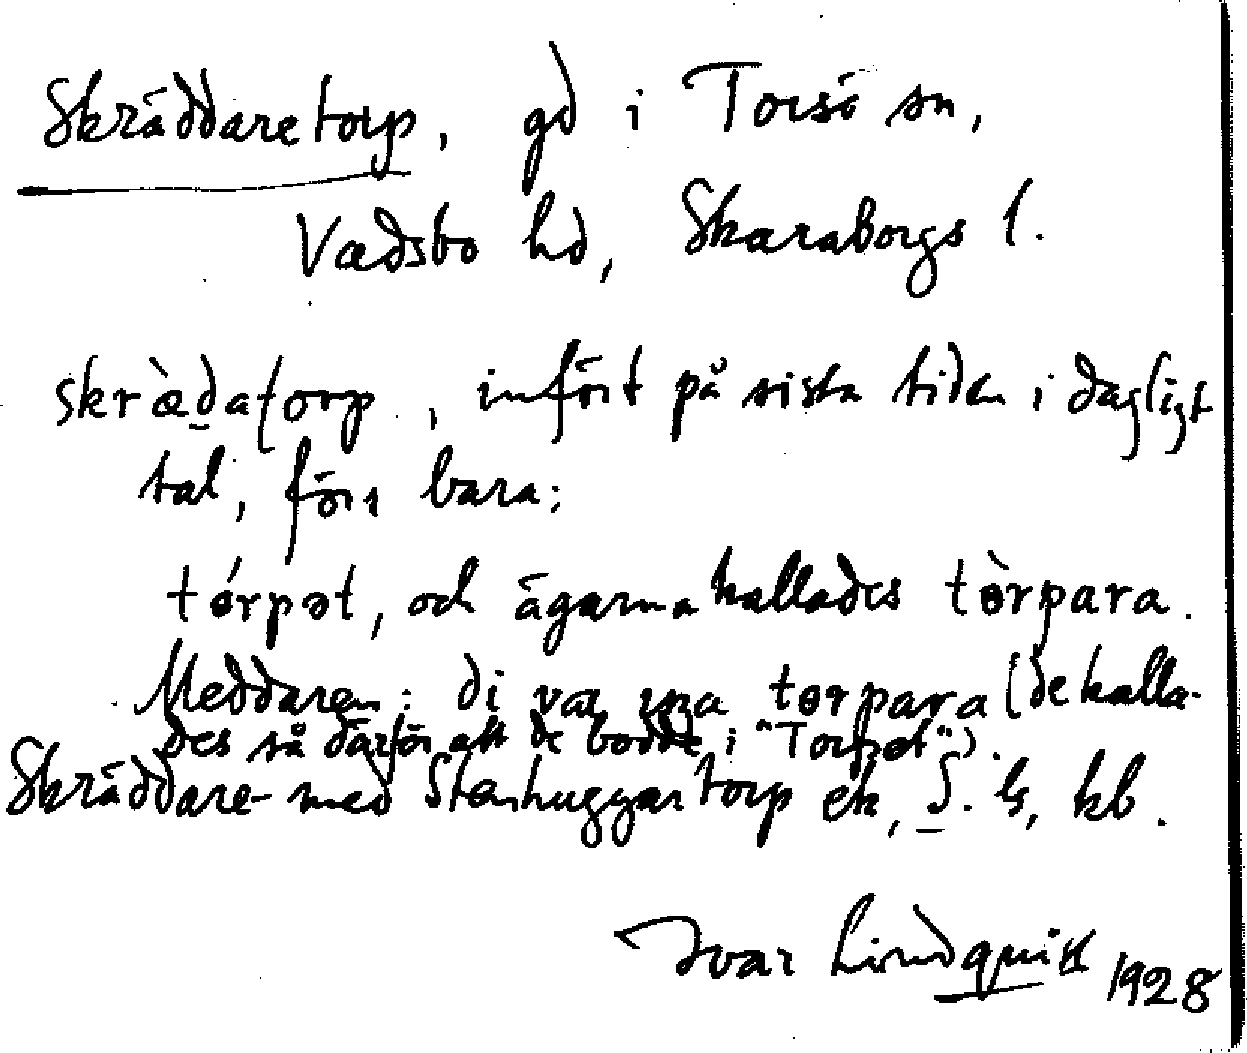 Skräddaretorp, gd i Torsö sn,
Vadsbo hd, Skaraborgs l.
skrædatorp, infört på sista tiden i dagligt
tal, förr bara:
tórpət, och ägarna kallades tòrpara.
Meddaren: di va torpara (de kalla-
des så därför att de bodde i "Torpet").
Skräddare- med Stenhuggartorp ek, kb.
Ivar Lindquist 1928